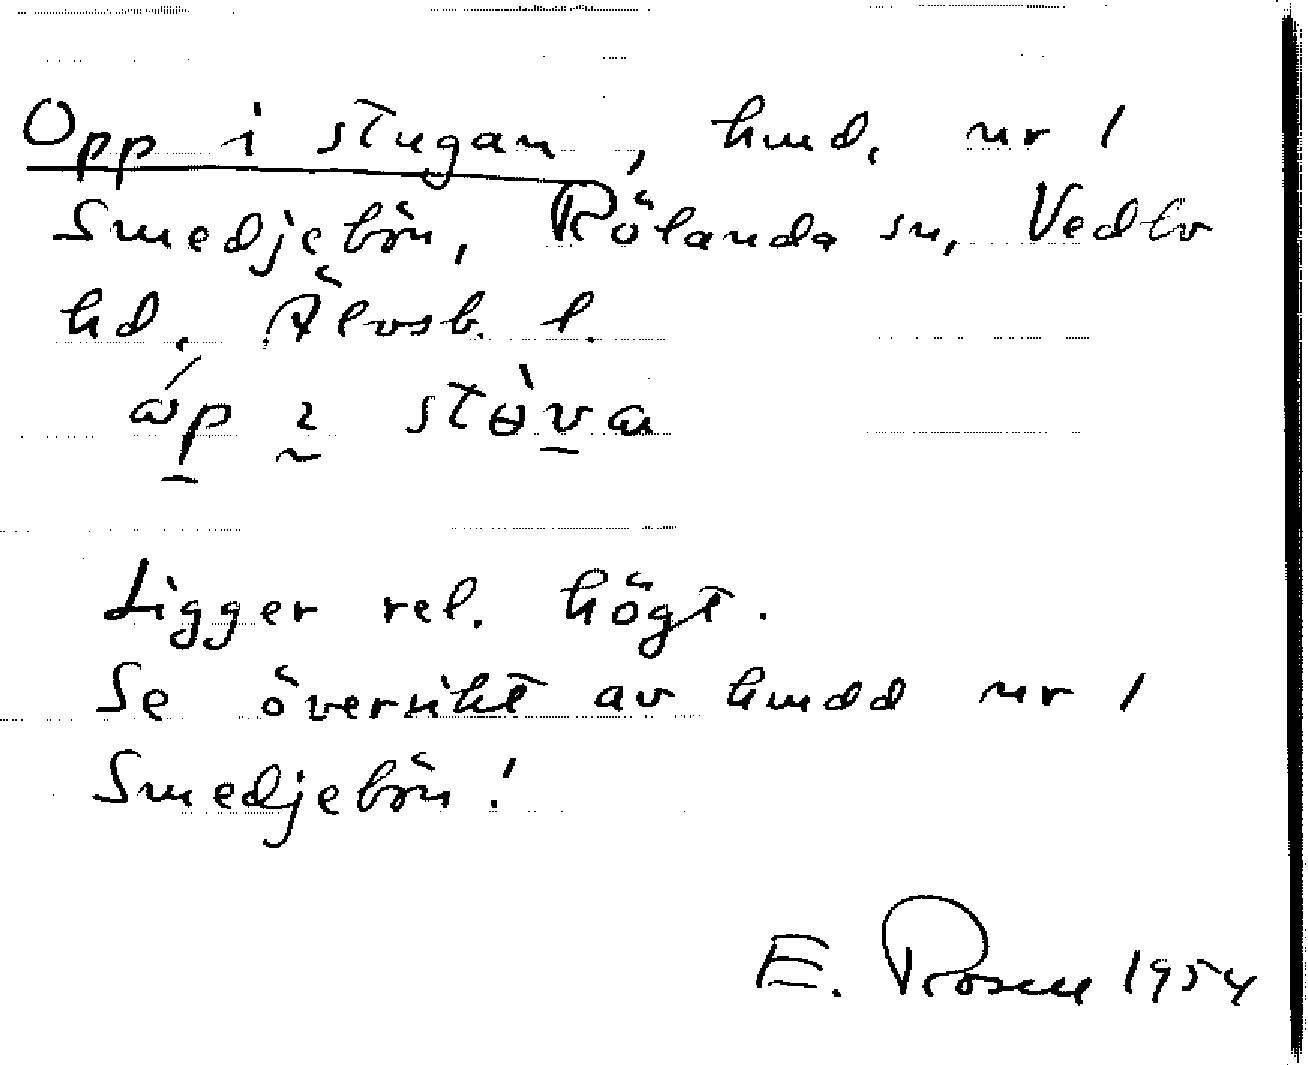 Opp i stugan, hmd. nr 1
Smedjebön, Rölanda sn, Vedbo
hd, Älvsb. l.
stɵ̀va
Ligger rel. högt.
Se översikt av hmdd nr 1
Smedjebön!
E. Rosen 1954